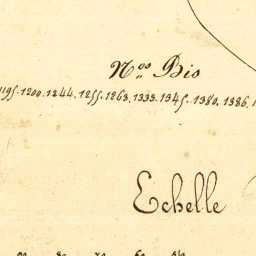 Nos Bis
1195. 1200. 1244. 1255. 1263. 1333. 1345. 1380. 1386.
Echelle